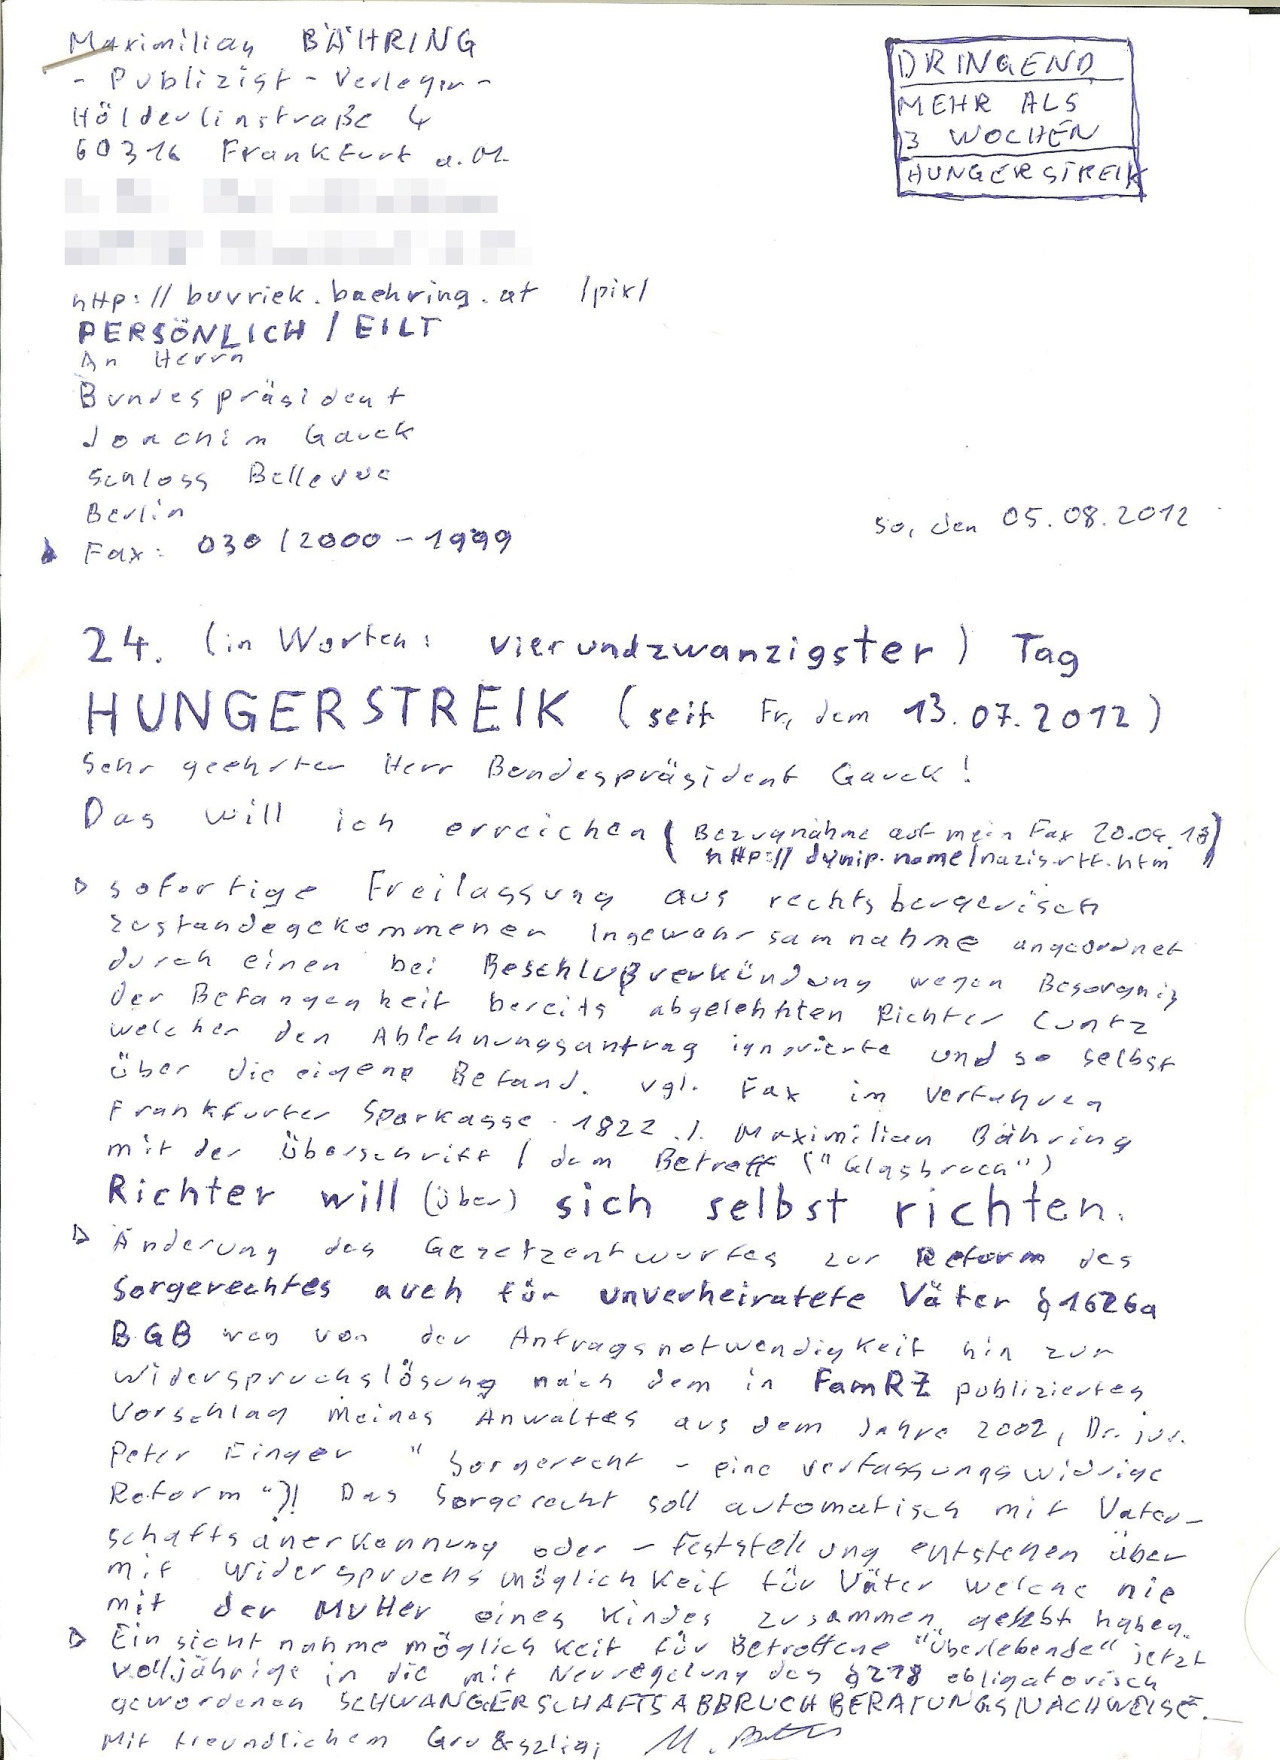 Maximilian BÄHRING
- Publizist - Verleger -
Hölderlinstraße 4
60316 Frankfurt a. M.
DRINGEND
MEHR ALS
3 WOCHEN
HUNGERSTREIK
http://buvriek.baehring.at /pix/
PERSÖNLICH / EILT
An Herrn
Bundespräsident
Joachim Gauck
Schloss Bellevue
Berlin
Fax: 030 / 2000 - 1999
So, den 05.08.2012
24. (in Worten: vierundzwanzigster) Tag
HUNGERSTREIK (seit Fr, dem 13.07.2012)
Sehr geehrter Herr Bundespräsident Gauck!
Das will ich erreichen (Bezugnahme auf mein Fax
http://dynip.name/nazis-rtf.htm)
sofortige Freilassung aus rechtsbeugerisch
zustandegekommenen Ingewahrsamnahme angeordnet
durch einen bei Beschlußverkündung wegen Besorgnis
der Befangenheit bereits abgelehnten Richter Cuntz
welcher den Ablehnungsantrag ignorierte und so selbst
über die eigene Befand. vgl. Fax im Verfahren
Frankfurter Sparkasse 1822 ./. Maximilian Bähring
mit der Überschrift / dem Betreff ("Glasbruch")
Richter will (über) sich selbst richten.
Änderung des Gesetzentwurfes zur Reform des
Sorgerechtes auch für unverheiratete Väter §1626a
BGB weg von der Antragsnotwendigkeit hin zur
Widerspruchslösung nach dem in FamRZ publizierten
Vorschlag meines Anwaltes aus dem Jahre 2002, Dr. jur.
Peter Finger "Sorgerecht - eine verfassungswidrige
Reform"?! Das Sorgerecht soll automatisch mit Vater-
schaftsanerkennung oder -feststellung entstehen aber
mit Widerspruchsmöglichkeit für Väter welche nie
mit der Mutter eines Kindes zusammen gelebt haben.
Einsichtnahmemöglichkeit für Betroffene "Überlebende" jetzt
volljährige in die mit Neuregelung des §218 obligatorisch
gewordenen SCHWANGERSCHAFTSABBRUCHBERATUNGSNACHWEISE.
Mit freundlichem